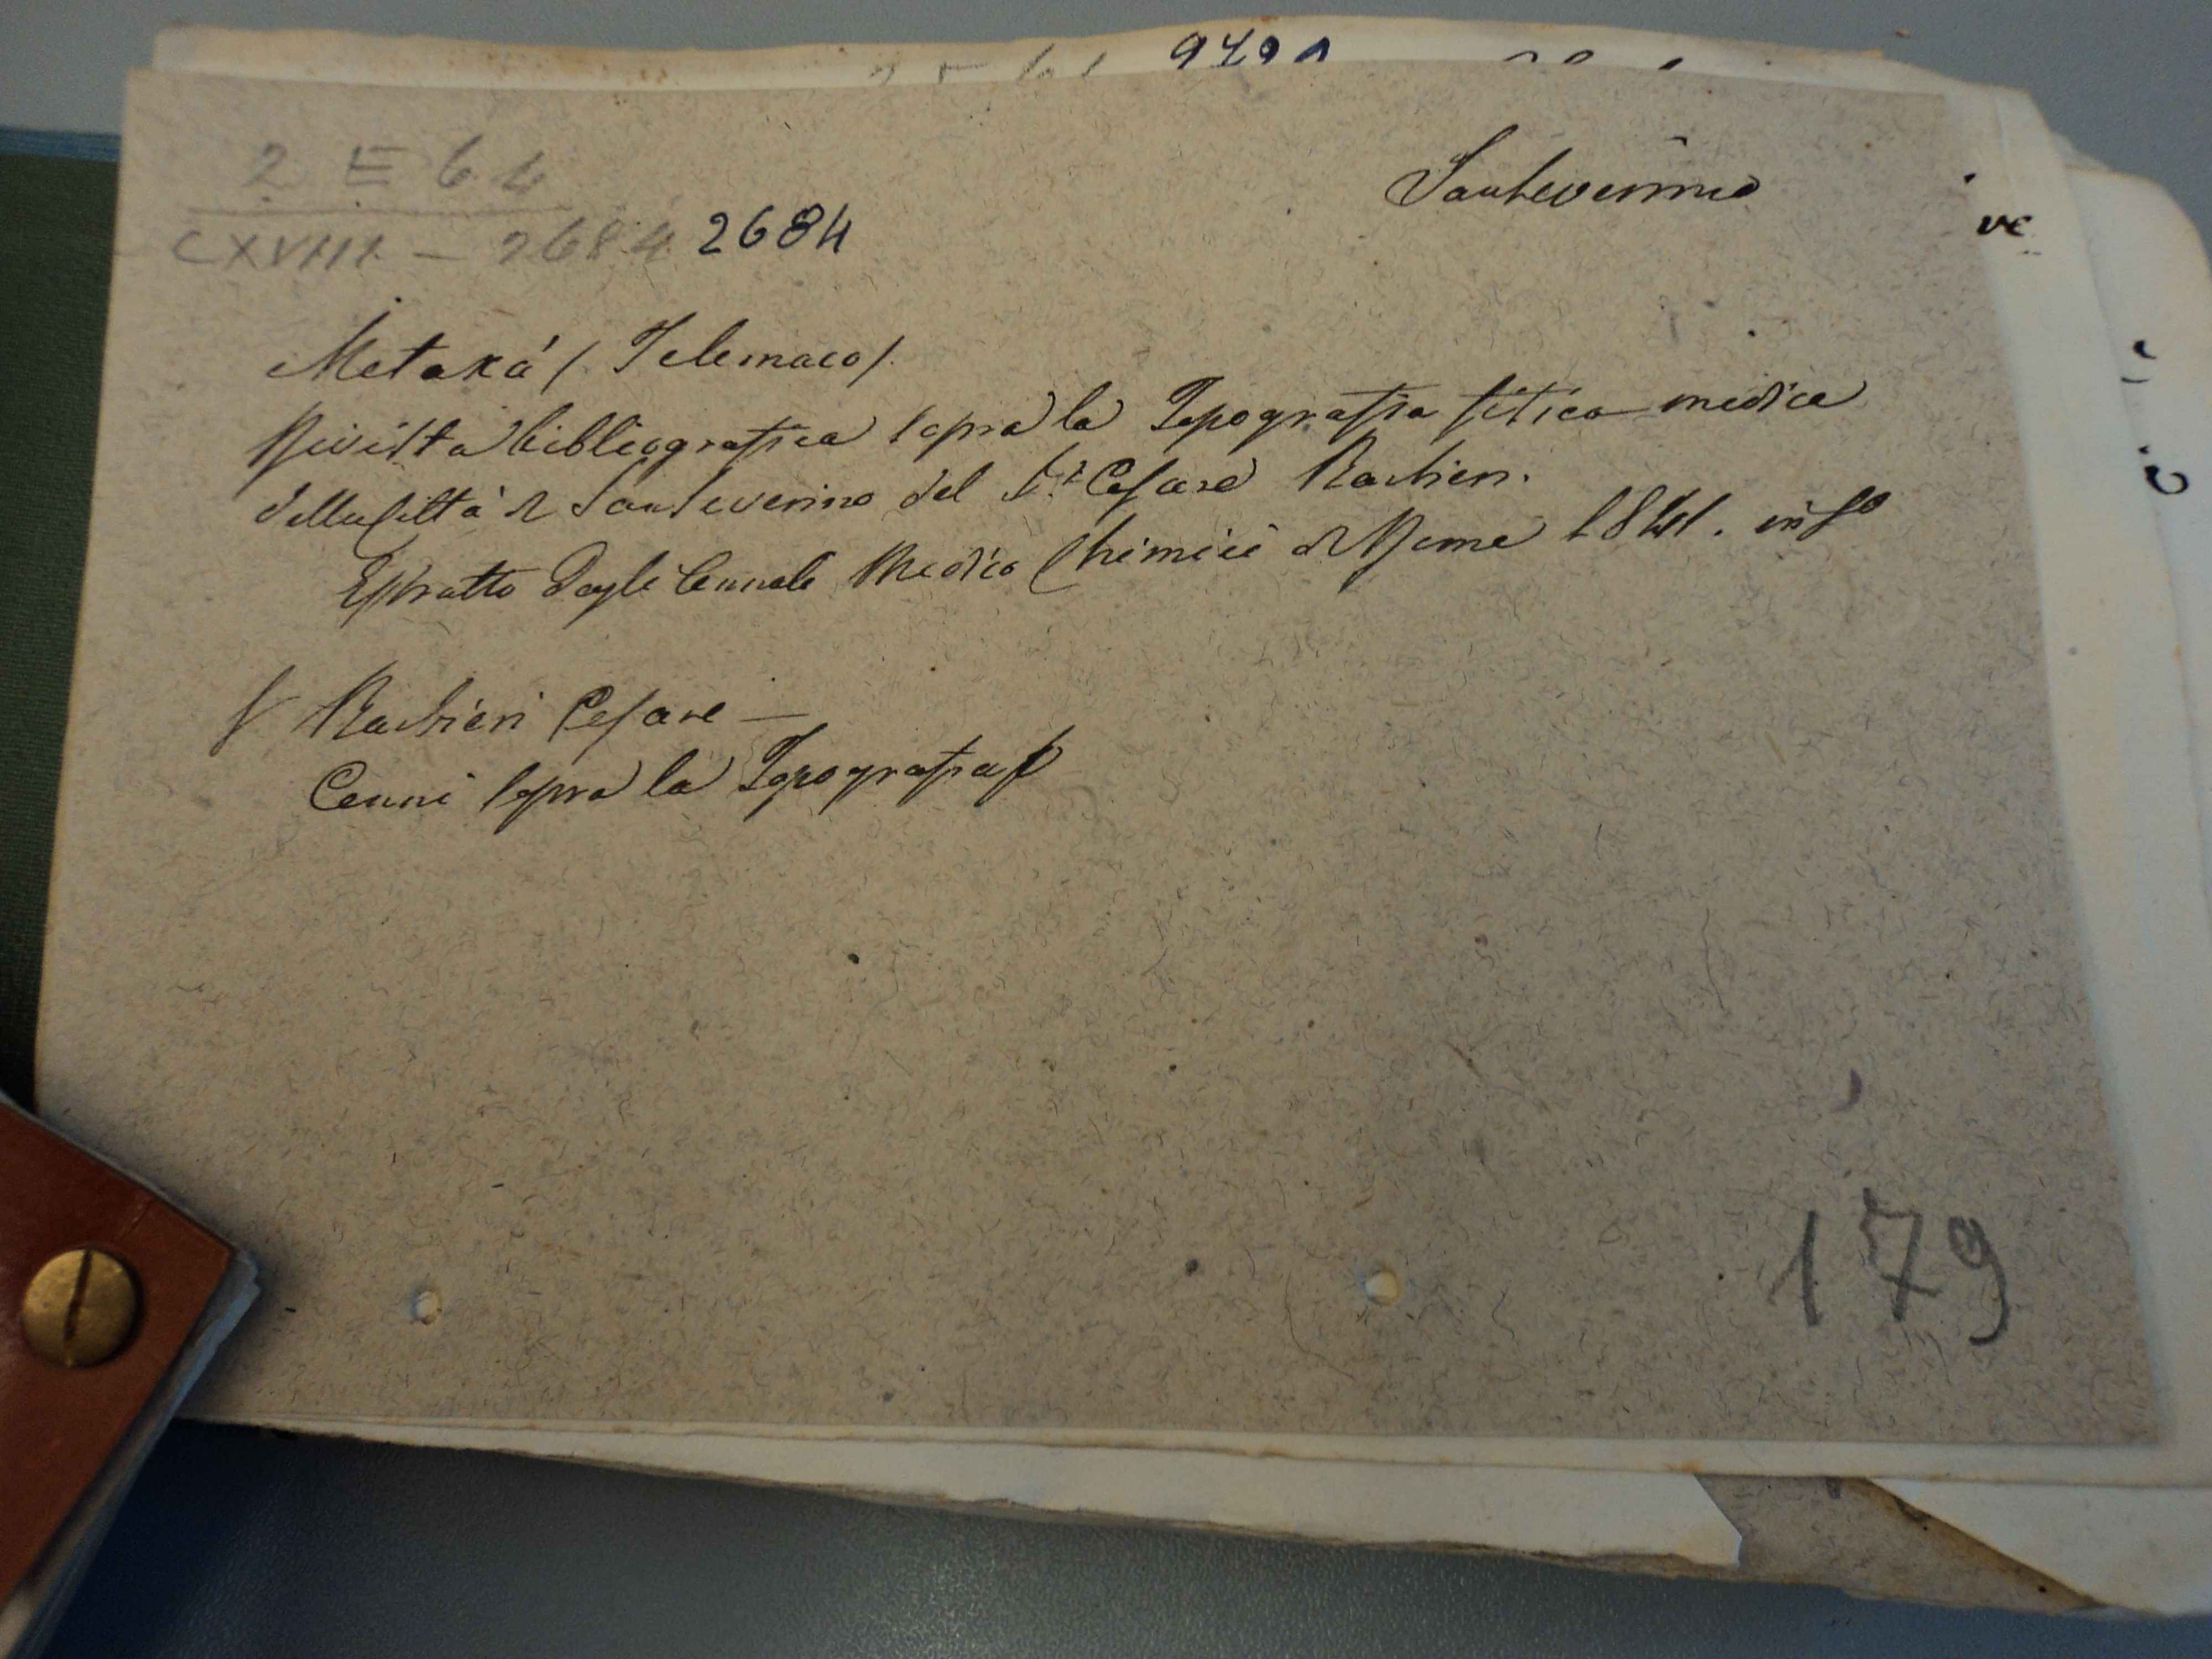 2 E 64
CXVIII - 2684 2684
Sanseverino
Metaxá (Telemaco).
Rivista bibliografica sopra la Topografia fisico medica
della Città di Sanseverino del Dr Cesare Barbieri.
Estratto dagli Annali Medico Chimici di Roma 1841. in 8º
V Barbieri Cesare —
Cenni sopra la Topografia
179